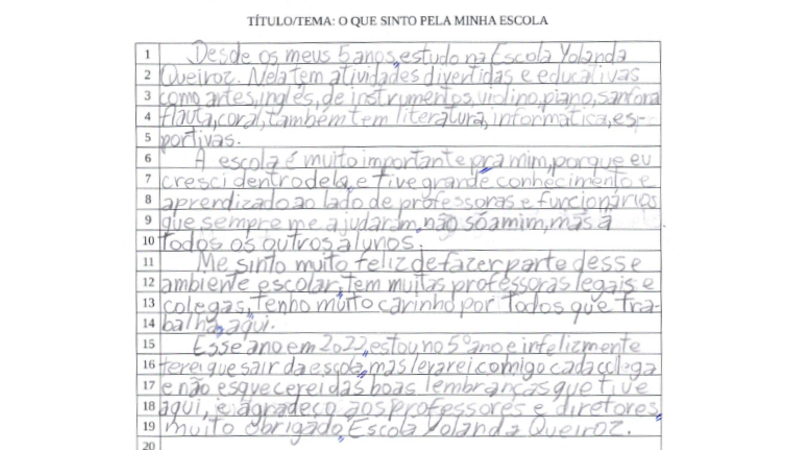 TÍTULO/TEMA: O QUE SINTO PELA MINHA ESCOLA
1 Desde os meus 5 anos, estudo na Escola Yolanda
2 Queiroz. Nela tem atividades divertidas e educativas
3 como artes, inglês, de instrumentos, violino, piano, sanfona
4 flauta, coral, também tem literatura, informática, es-
5 portivas.
6 A escola é muito importante pra mim, porque eu
7 cresci dentro dela, e tive grande conhecimento e
8 aprendizado ao lado de professoras e funcionários
9 que sempre me ajudaram, não só a mim, mas a
10 todos os outros alunos.
11 Me sinto muito feliz de fazer parte desse
12 ambiente escolar, tem muitas professoras legais e
13 colegas, tenho muito carinho por todos que tra-
14 balha, aqui.
15 Esse ano em 2022, estou no 5º ano e infelizmente
16 terei que sair da escola, mas levarei comigo cada colega
17 e não esquecerei das boas lembranças que tive
18 aqui, e agradeço aos professores e diretores,
19 muito obrigado, Escola Yolanda Queiroz.
20